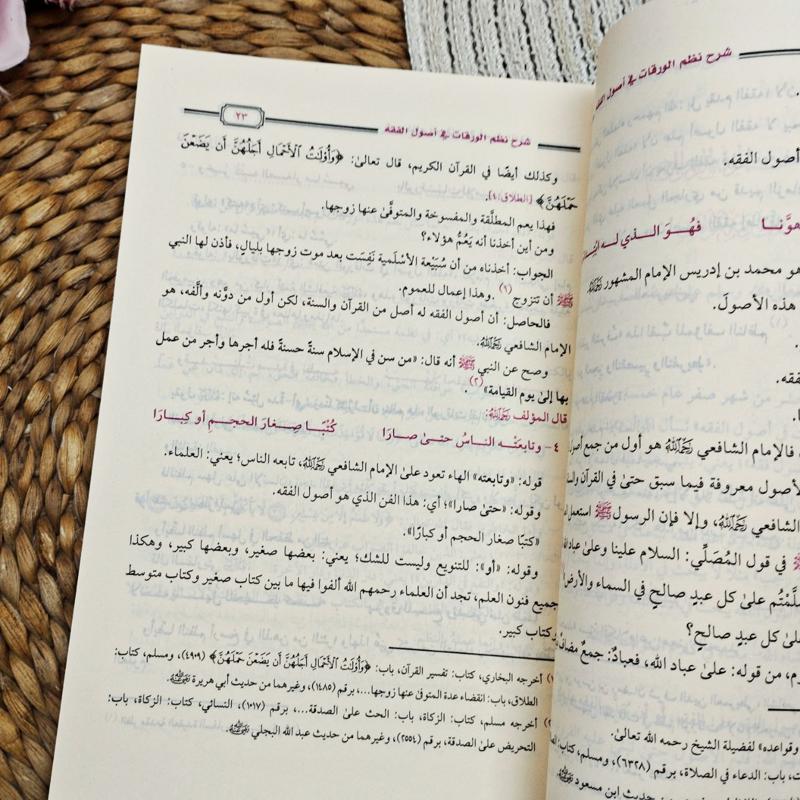 شرح نظم الورقات في أصول الفقه
أصول الفقه.
هوَّنا فهُوَ الــذي لــه
هو محمد بن إدريس الإمام المشهور رَحِمَهُ ٱللَّهُ
هذه الأصولَ.
فقه.
فالإمام الشافعي رَحِمَهُ ٱللَّهُ هو أول من جمع
لأصول معروفة فيما سبق حتىٰ في القرآن
الشافعي رَحِمَهُ ٱللَّهُ، وإلا فإن الرسول ﷺ استعمل
ﷺ في قول المُصَلِّي: السلام علينا وعلىٰ عباد
سلَّمْتُم علىٰ كل عبدٍ صالحٍ في السماء والأرض
علىٰ كل عبدٍ صالح؟
من قوله: علىٰ عباد الله، فعبادٌ: جمعٌ مضاف
وقواعده» لفضيلة الشيخ رحمه الله تعالىٰ.
باب: الدعاء في الصلاة، برقم (٦٣٢٨)، ومسلم، كتاب:
حديث ابن مسعود
شرح نظم الورقات في أصول الفقه ٢٣
وكذلك أيضًا في القرآن الكريم، قال تعالىٰ: ﴿وَأُوْلَٰتُ ٱلْأَحْمَالِ أَجَلُهُنَّ أَن يَضَعْنَ
حَمْلَهُنَّ﴾ [الطلاق:٤].
فهذا يعم المطلَّقة والمفسوخة والمتوفَّىٰ عنها زوجها.
ومن أين أخذنا أنه يَعُمُّ هؤلاء؟
الجواب: أخذناه من أن سُبَيْعة الأسْلَمية نَفِسَت بعد موت زوجها بليالٍ، فأذن لها النبي
ﷺ أن تتزوج (١). وهذا إعمال للعموم.
فالحاصل: أن أصول الفقه له أصل من القرآن والسنة، لكن أول من دوَّنه وألَّفه، هو
الإمام الشافعي رَحِمَهُ ٱللَّهُ.
وصح عن النبي ﷺ أنه قال: «من سن في الإسلام سنةً حسنةً فله أجرها وأجر من عمل
بها إلىٰ يوم القيامة» (٢).
قال المؤلف رَحِمَهُ ٱللَّهُ:
٤- وتابعَتْه الناسُ حتىٰ صــارا كُتْبًـا صِــغارَ الحجــمِ أو كِبــارَا
قوله: «وتابعته» الهاء تعود علىٰ الإمام الشافعي رَحِمَهُ ٱللَّهُ، تابعه الناس؛ يعني: العلماء.
وقوله: «حتىٰ صارا»؛ أي: هذا الفن الذي هو أصول الفقه.
«كتبًا صغار الحجم أو كبارًا».
وقوله: «أو»: للتنويع وليست للشك؛ يعني: بعضها صغير، وبعضها كبير، وهكذا
جميع فنون العلم، تجد أن العلماء رحمهم الله ألفوا فيها ما بين كتاب صغير وكتاب متوسط
وكتاب كبير.
(١) أخرجه البخاري، كتاب: تفسير القرآن، باب: ﴿وَأُوْلَٰتُ ٱلْأَحْمَالِ أَجَلُهُنَّ أَن يَضَعْنَ حَمْلَهُنَّ﴾ (٤٩٠٩)، ومسلم، كتاب:
الطلاق، باب: انقضاء عدة المتوفىٰ عنها زوجها...، برقم (١٤٨٥)، وغيرهما من حديث أبي هريرة
أخرجه مسلم، كتاب: الزكاة، باب: الحث علىٰ الصدقة...، برقم (١٠١٧)، النسائي، كتاب: الزكاة، باب:
التحريض علىٰ الصدقة، برقم (٢٥٥٤)، وغيرهما من حديث عبد الله البجلي